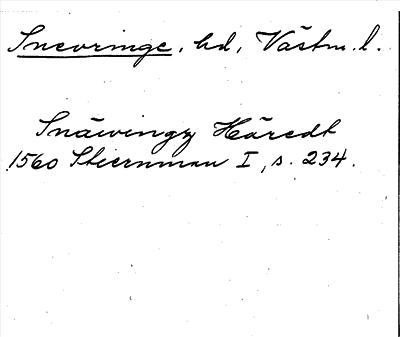 Snevringe, hd, Västm. l.
Snäwingx Häredt
1560 Stiernman I, s. 234.